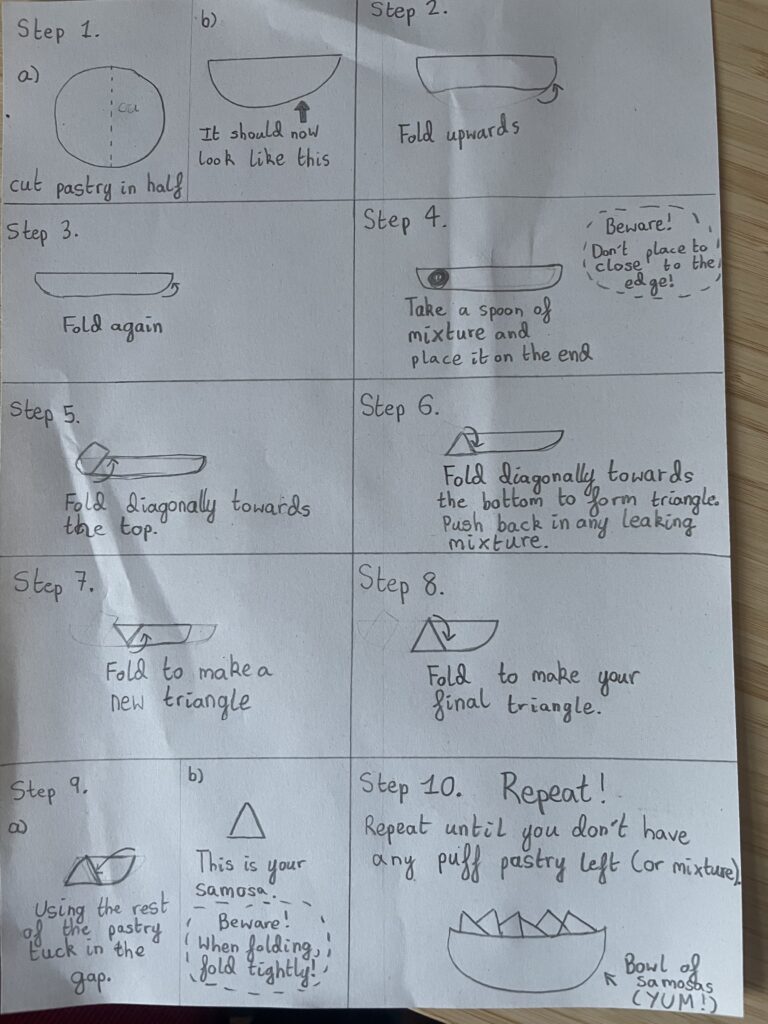 Step 1.
a)
cut pastry in half
b)
It should now
look like this
Step 2.
Fold upwards
Step 3.
Fold again
Step 4.
Beware!
Don't place to
close to the
edge!
Take a spoon of
mixture and
place it on the end
Step 5.
Fold diagonally towards
the top.
Step 6.
Fold diagonally towards
the bottom to form triangle.
Push back in any leaking
mixture.
Step 7.
Fold to make a
new triangle
Step 8.
Fold to make your
final triangle.
Step 9.
a)
Using the rest
of the pastry
tuck in the
gap.
b)
This is your
samosa.
Beware!
When folding,
fold tightly!
Step 10. Repeat!
Repeat until you don't have
any puff pastry left (or mixture).
Bowl of
samosas
(YUM!)